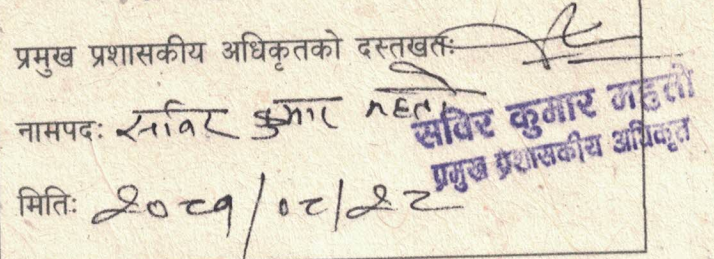 प्रमुख प्रशासकीय अधिकृतको दस्तखतः
नामपदः सविर कुमार महतो
सविर कुमार महतो
प्रमुख प्रशासकीय अधिकृत
मितिः २०८१/०८/२८